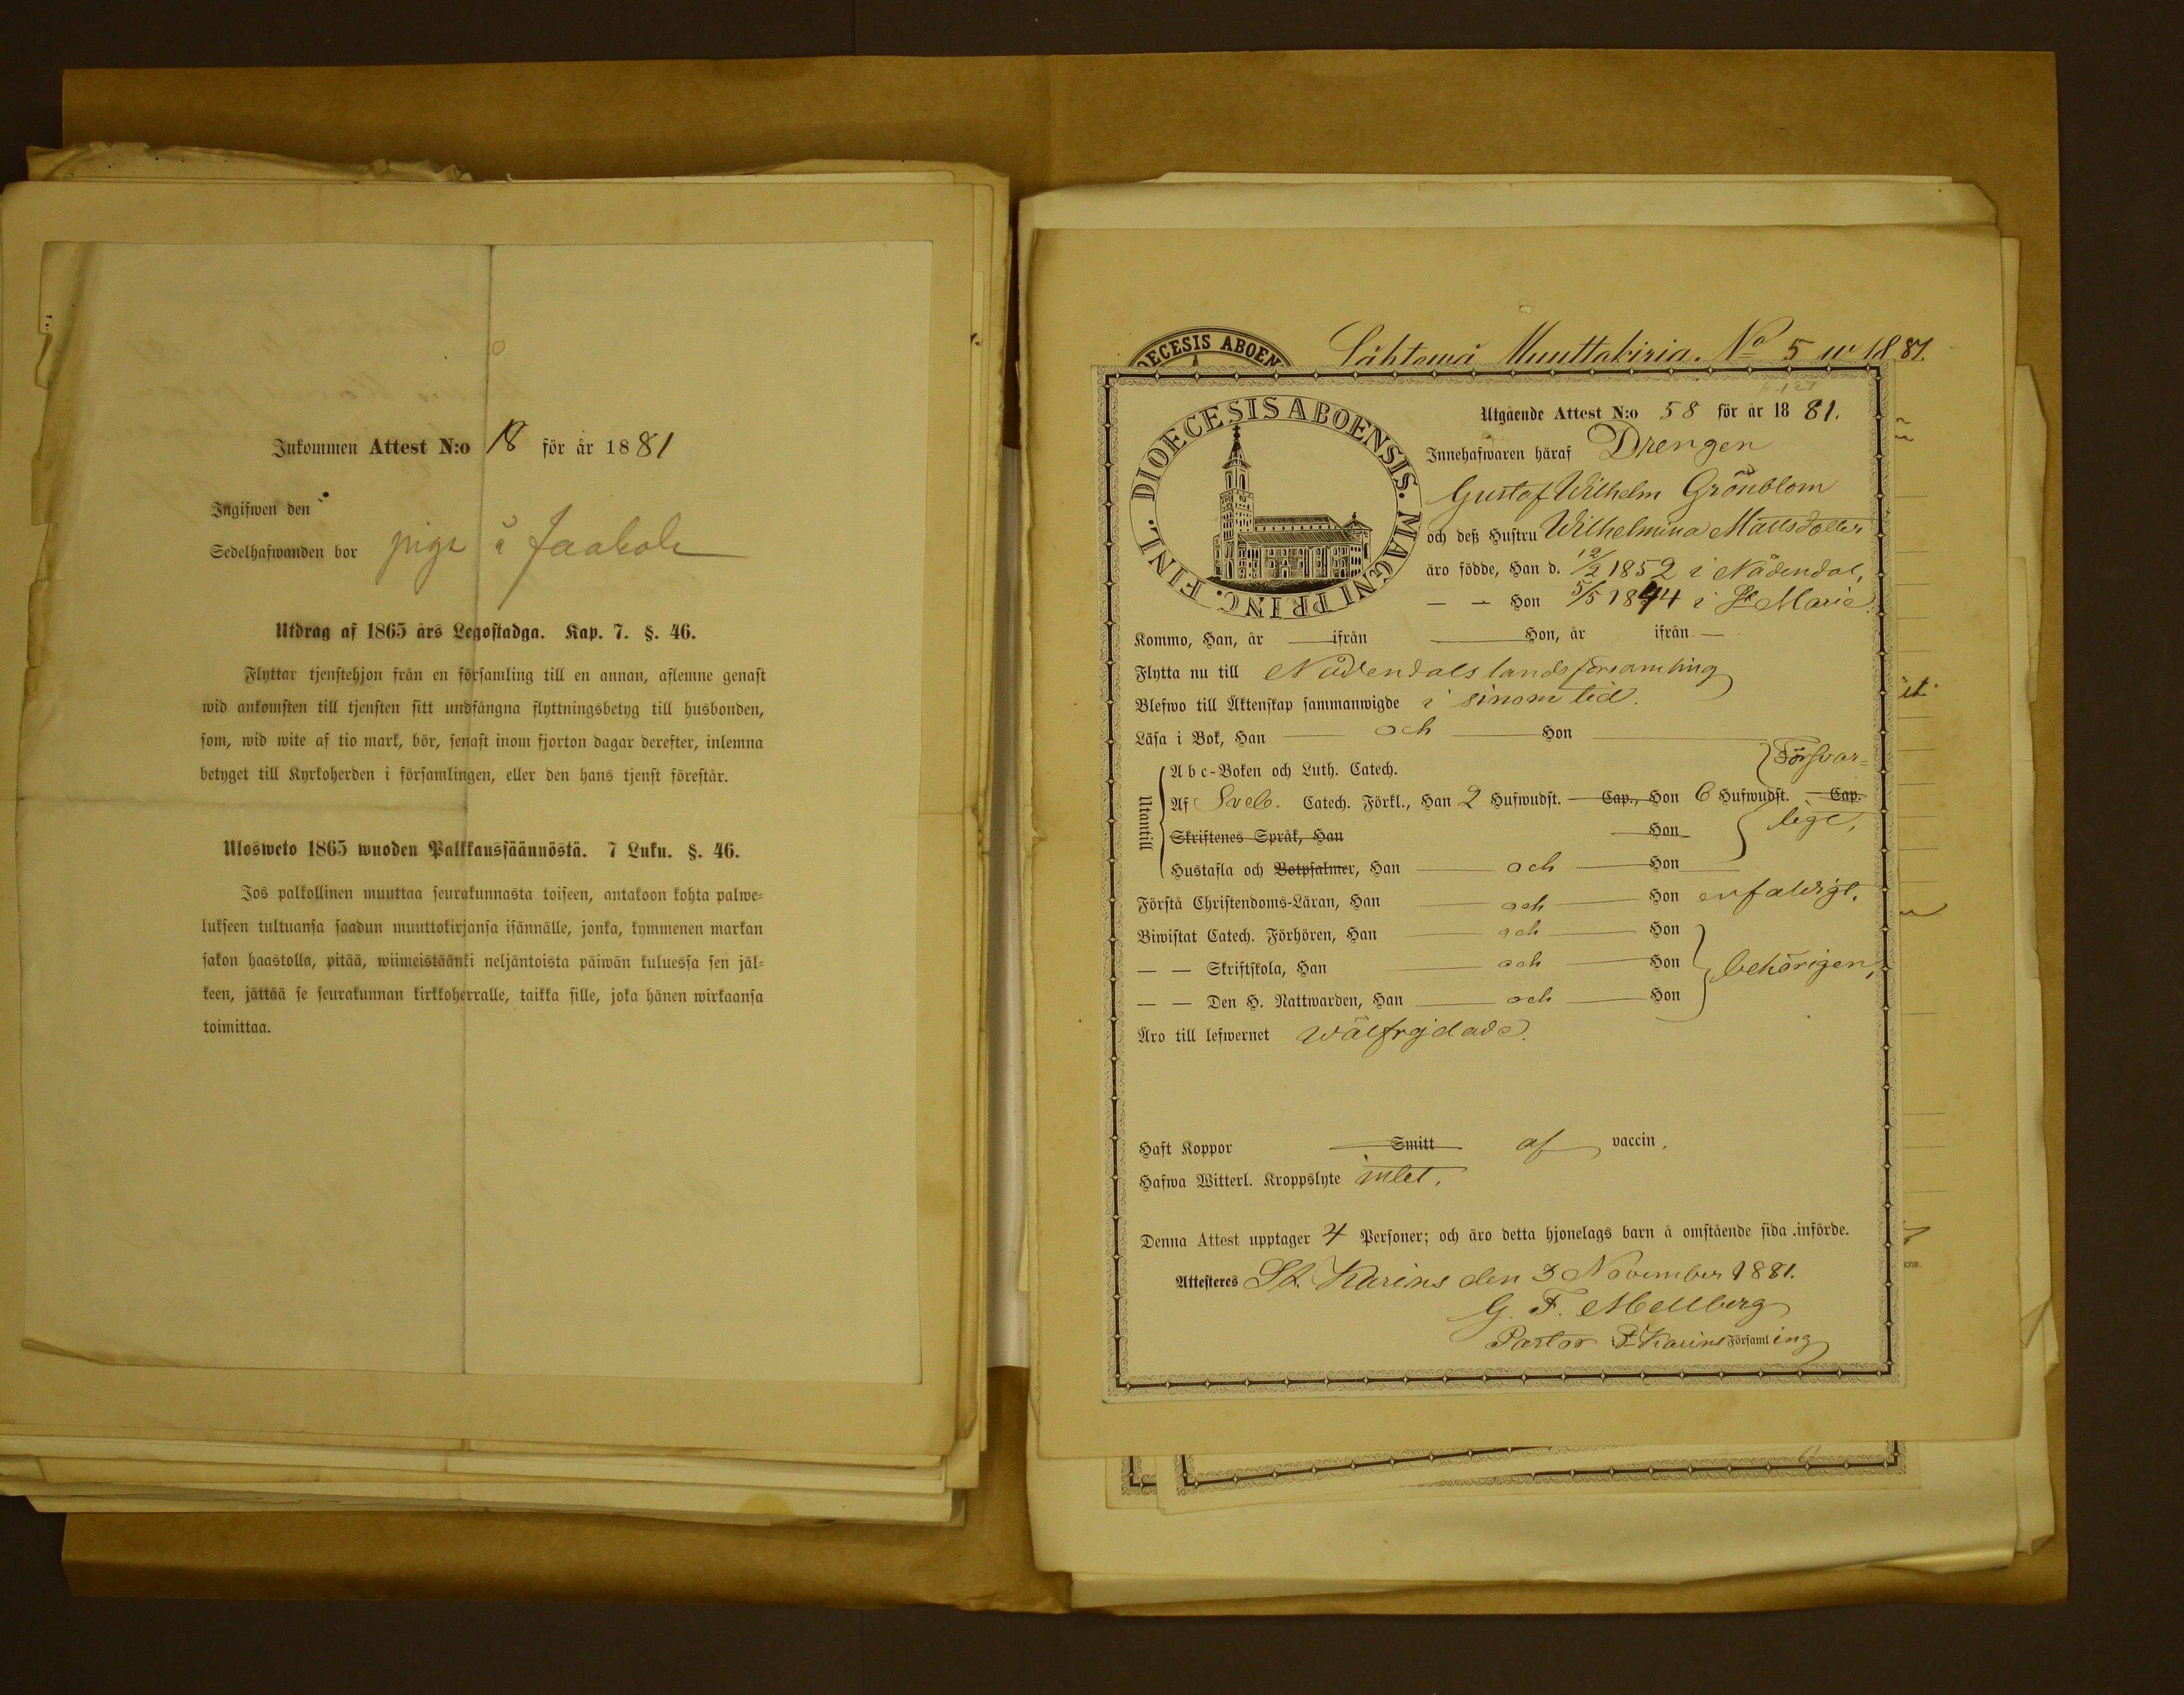 Inkommen Attest N:o 18 för år 1881
Ingifwen den
Sedelhafwanden bor piga å Jaakola
Utdrag af 1865 års Legostadga. Kap. 7. §. 46.
Flyttar tjenstehjon från en församling till en annan, aflemne genast
wid ankomsten till tjensten sitt undfångna flyttningsbetyg till husbonden,
som, wid wite af tio mark, bör, senast inom fjorton dagar derefter, inlemna
betyget till Kyrkoherden i församlingen, eller den hans tjenst förestår.
Ulosweto 1865 wuoden Palkkaussäännöstä. 7 Luku. §. 46.
Jos palkollinen muuttaa seurakunnasta toiseen, antakoon kohta palwe=
lukseen tultuansa saadun muuttokirjansa isännälle, jonka, kymmenen markan
sakon haastolla, pitää, wiimeistäänki neljäntoista päiwän kuluessa sen jäl=
keen, jättää se seurakunnan kirkkoherralle, taikka sille, joka hänen wirkaansa
toimittaa.
DECESIS ABOEN
Lähtewä Muuttokirja. No 5 w 1881.
DIOECESIS ABOENSIS. MAGNI PRINC. FINL.
Utgående Attest N:o 58 för år 1881.
Innehafwaren häraf Drengen
Gustaf Wilhelm Grönblom
och deß Hustru Wilhelmina Mattsdotter
äro födde, Han d. 12/2 1852 i Nådendal,
— — Hon 5/5 1844 i St Marie
Kommo, Han, år — ifrån — Hon, år ifrån —
Flytta nu till Nådendals landsförsamling
Blefwo till Äktenskap sammanwigde i sinom tid.
Läsa i Bok, Han — och — Hon
Utantill
Abc-Boken och Luth. Catech.
Försvar=
Af Sveb. Catech. Förkl., Han 2 Hufwudst. Cap., Hon 6 Hufwudst. Cap.
lige,
Skriftenes Språk, Han Hon
Hustafla och Botpsalmer, Han — och — Hon
Förstå Christendoms-Läran, Han — och — Hon enfaldigt.
Biwistat Catech. Förhören, Han — och — Hon
— — Skriftskola, Han — och — Hon behörigen,
— — Den H. Nattwarden, Han — och — Hon
Äro till lefwernet wälfrejdade.
Haft Koppor Smitt af vaccin.
Hafwa Witterl. Kroppslyte intet.
Denna Attest upptager 4 Personer; och äro detta hjonelags barn å omstående sida införde.
Attesteres St. Karins den 3 November 1881.
G. F. Mellberg
Pastor i St Karins Församling